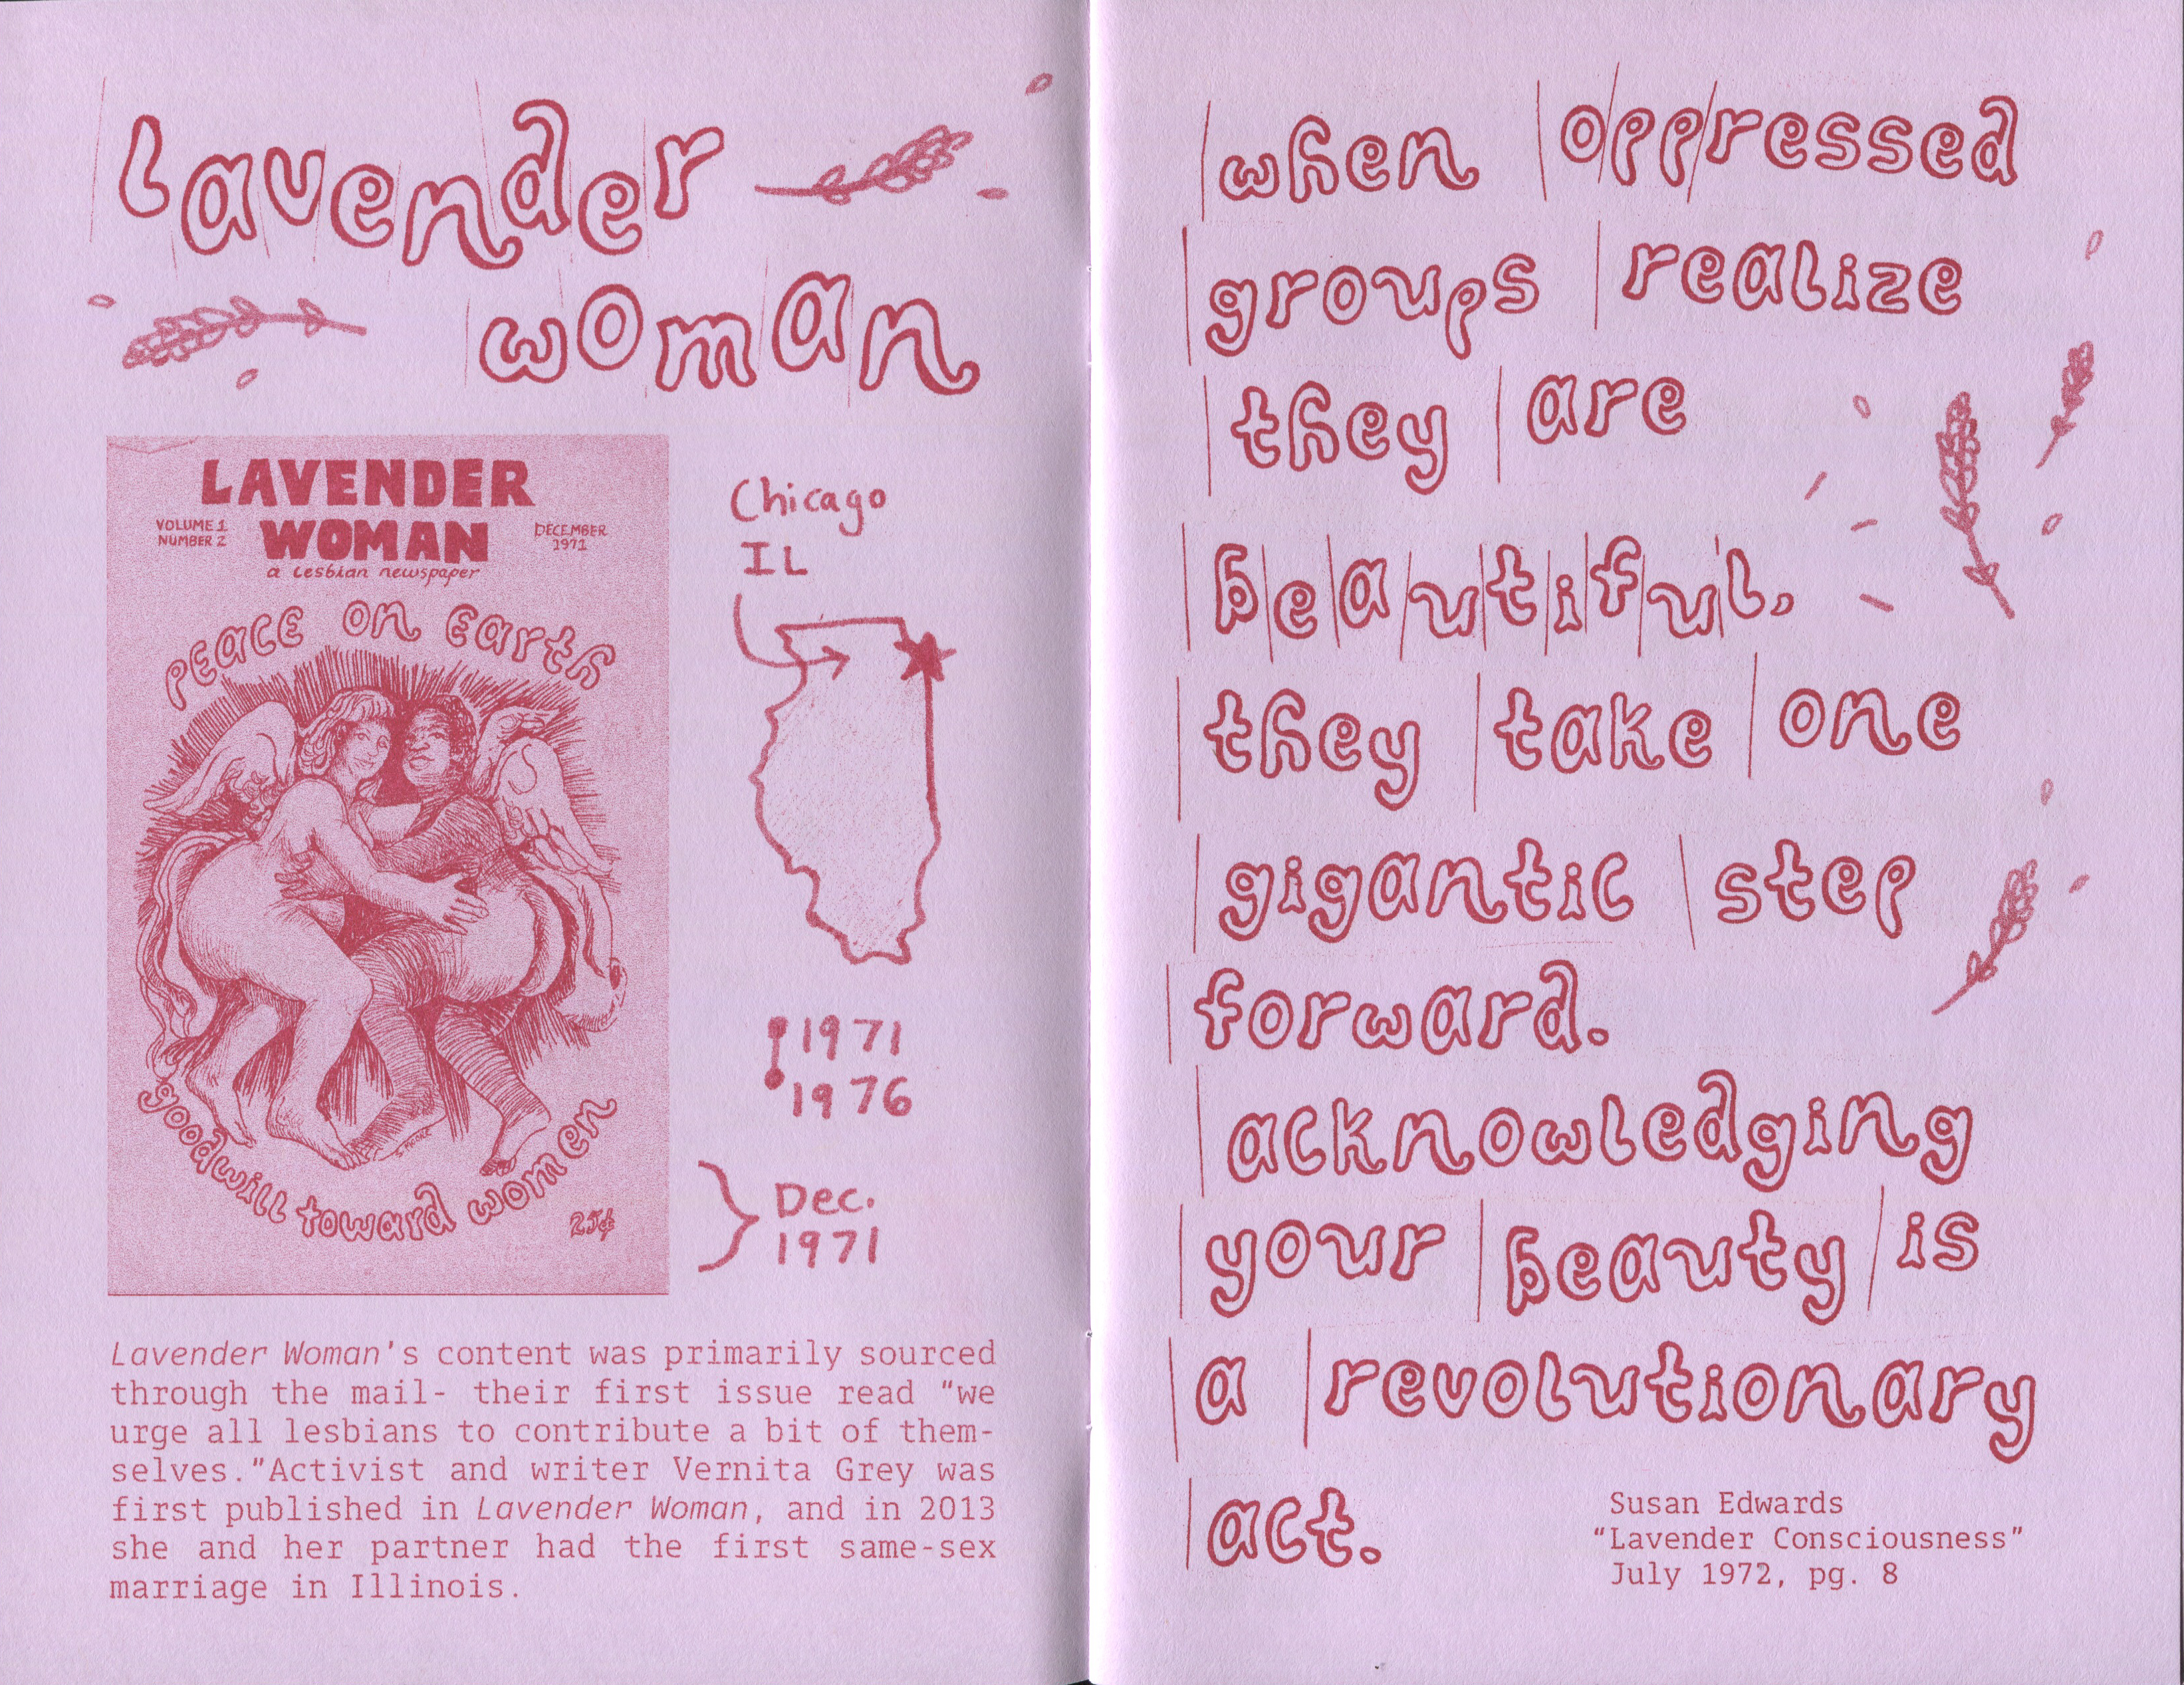 lavender
woman
LAVENDER
VOLUME 1
NUMBER 2
WOMAN
DECEMBER
1971
a lesbian newspaper
PEACE on Earth
goodwill toward women
25¢
Chicago
IL
1971
1976
Dec.
1971
Lavender Woman's content was primarily sourced
through the mail- their first issue read "we
urge all lesbians to contribute a bit of them-
selves."Activist and writer Vernita Grey was
first published in Lavender Woman, and in 2013
she and her partner had the first same-sex
marriage in Illinois.
when oppressed
groups realize
they are
beautiful,
they take one
gigantic step
forward.
acknowledging
your beauty is
a revolutionary
act.
Susan Edwards
"Lavender Consciousness"
July 1972, pg. 8